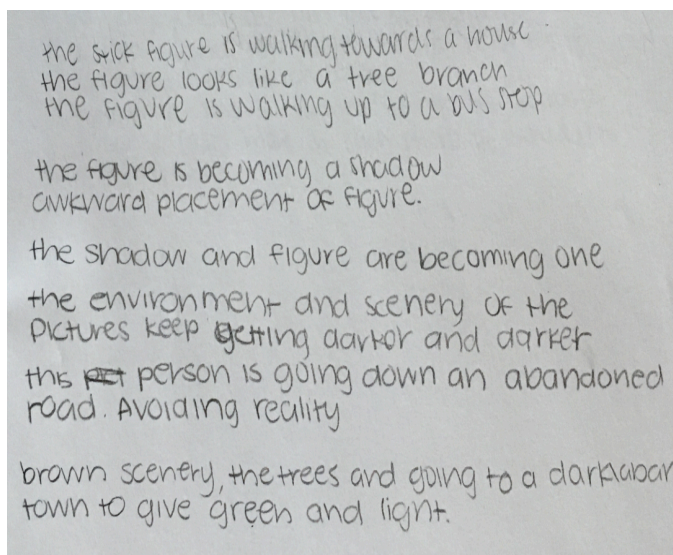 the stick figure is walking towards a house.
the figure looks like a tree branch
the figure is walking up to a bus stop
the figure is becoming a shadow
awkward placement of figure.
the shadow and figure are becoming one
the environment and scenery of the
pictures keep getting darker and darker
this person is going down an abandoned
road. Avoiding reality
brown scenery, the trees and going to a dark
town to give green and light.